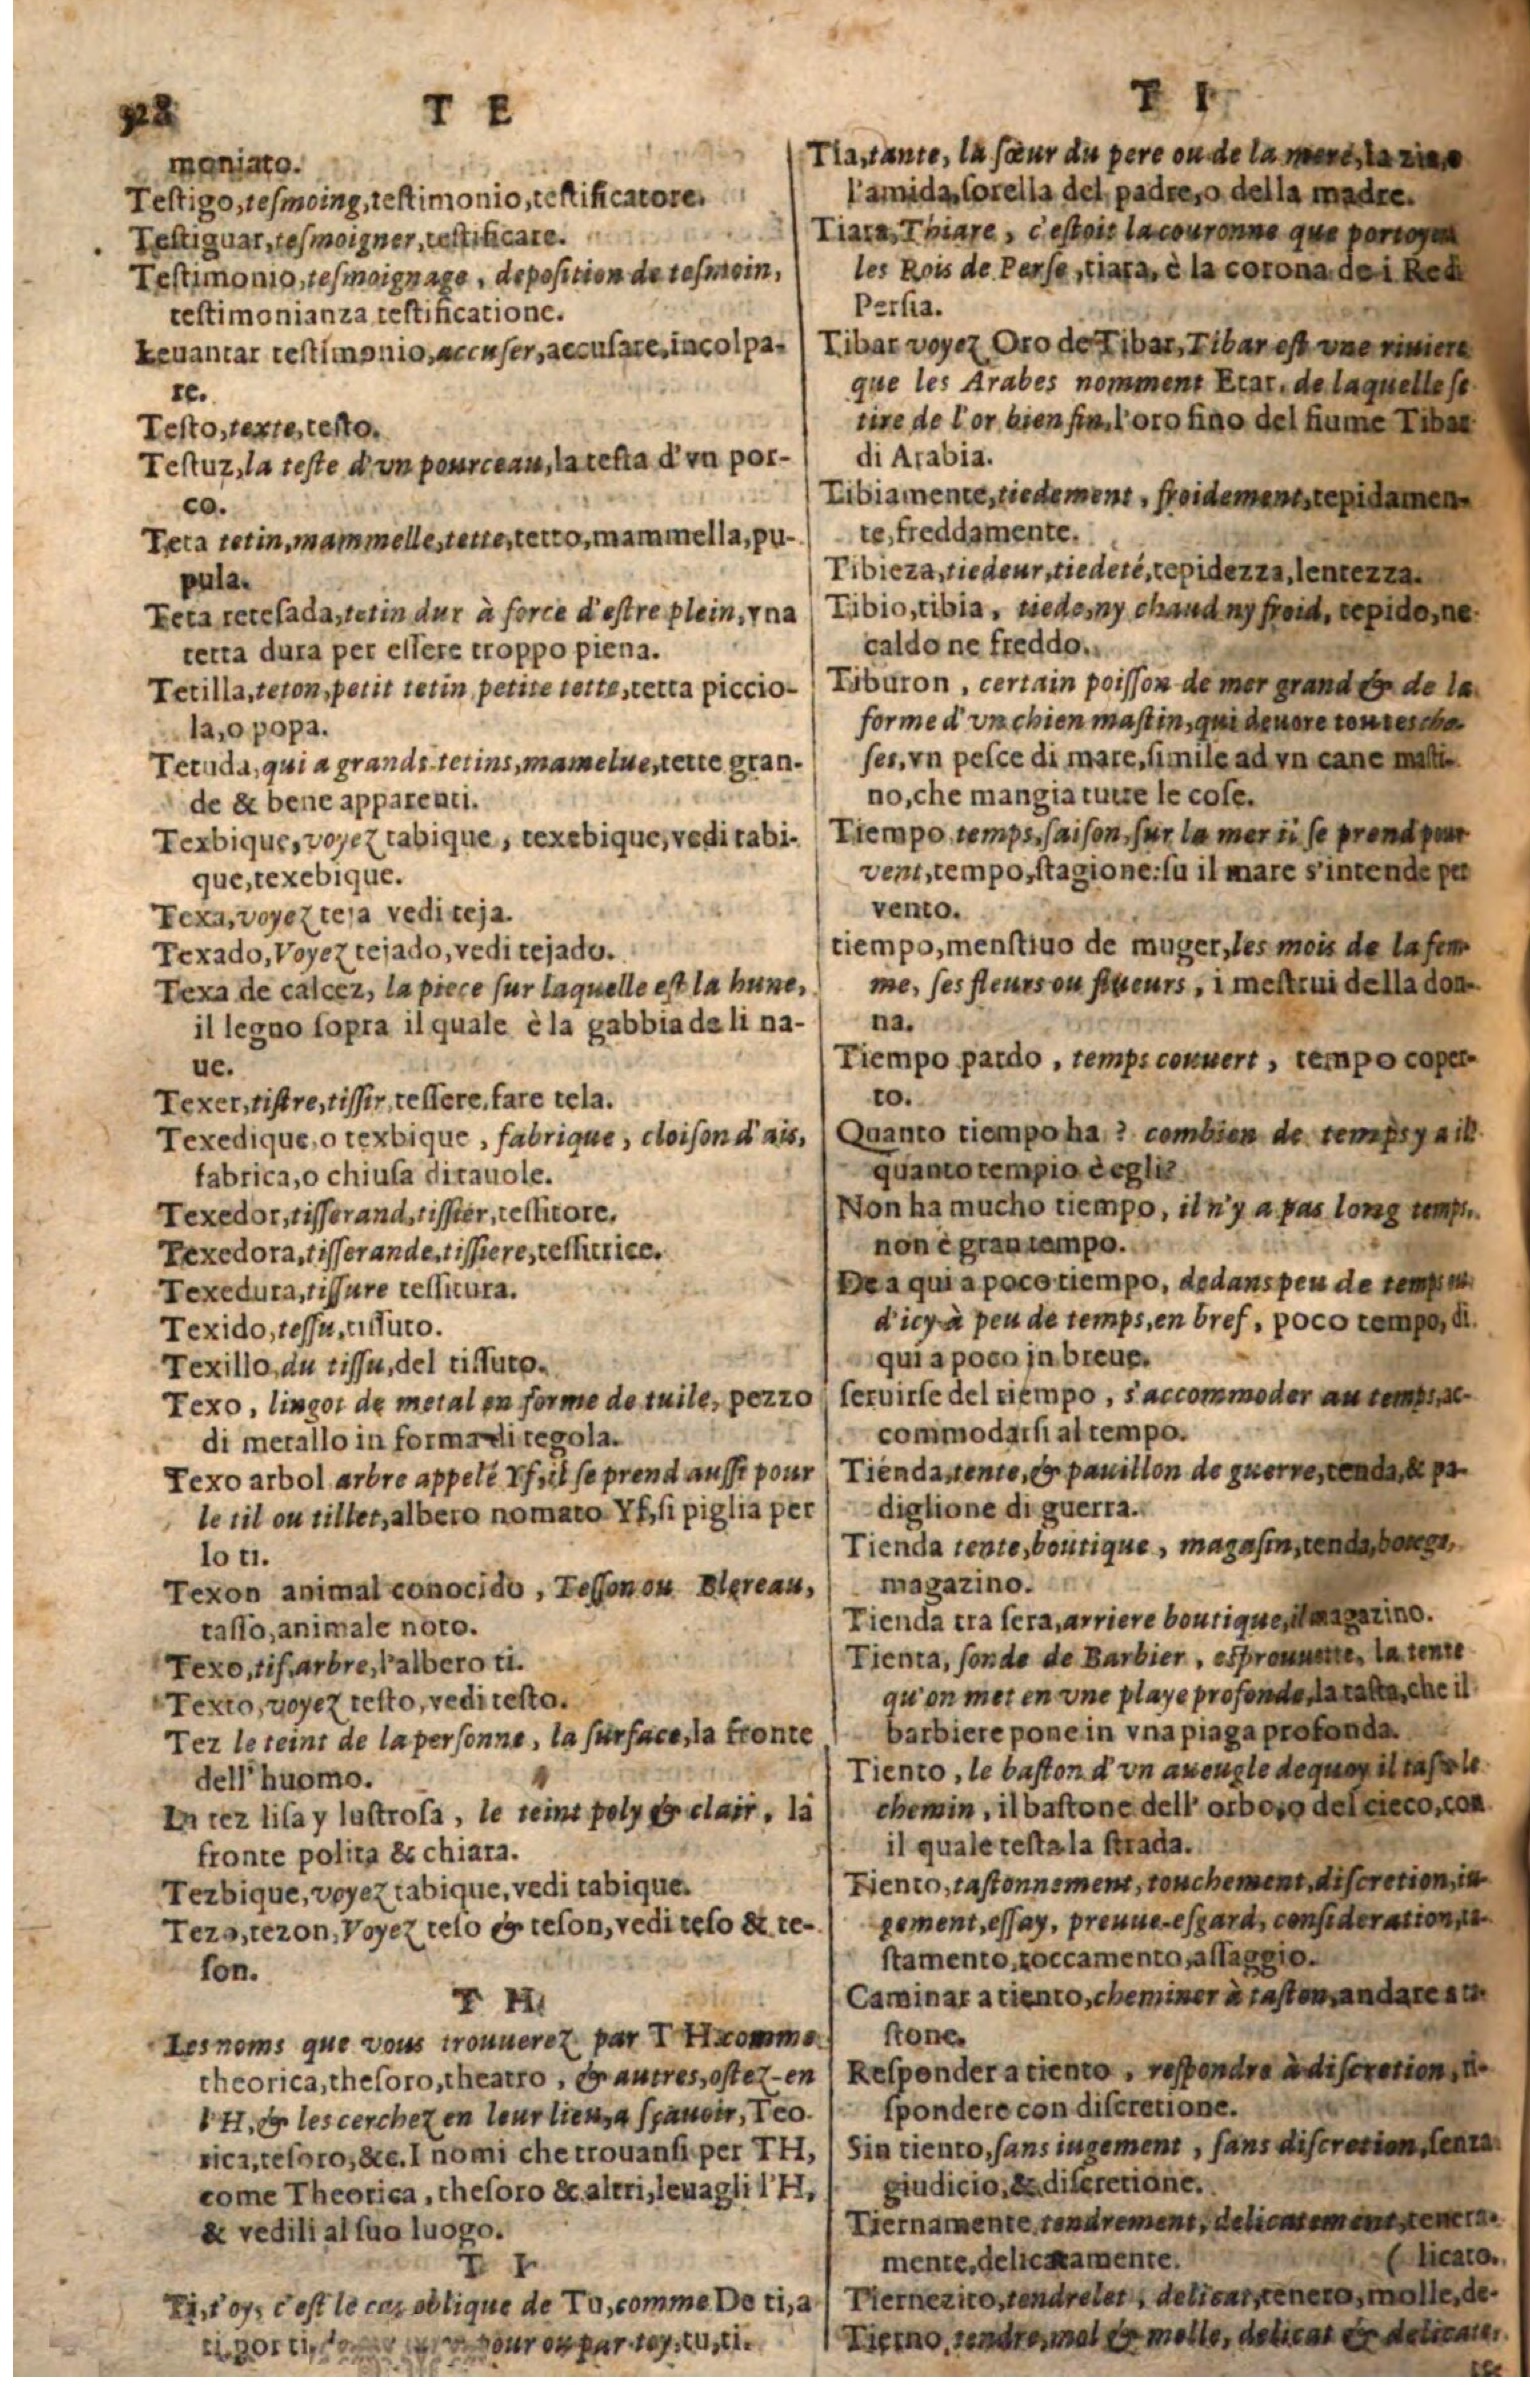 528 T E
moniato.
Testigo, tesmoing, testimonio, testificatore.
Testiguar, tesmoigner, testificare.
Testimonio, tesmoignage, deposition de tesmoin,
testimonianza testificatione.
Leuantar testimonio, accuser, accusare, incolpa-
re.
Testo, texte, testo.
Testuz, la teste d'vn pourceau, la testa d'vn por-
co.
Teta tetin, mammelle, tette, tetto, mammella, pu-
pula.
Teta retesada, tetin dur à force d'estre plein, vna
tetta dura per essere troppo piena.
Tetilla, teton, petit tetin petite tette, tetta piccio-
la, o popa.
Tetuda, qui a grands tetins, mamelue, tette gran-
de & bene apparenti.
Texbique, voyez tabique, texebique, vedi tabi-
que, texebique.
Texa, voyez teja vedi teja.
Texado, Voyez tejado, vedi tejado.
Texa de calcez, la piece sur laquelle est la hune,
il legno sopra il quale è la gabbia de li na-
ue.
Texer, tistre, tissir, tessere, fare tela.
Texedique o texbique, fabrique, cloison d'ais,
fabrica, o chiusa di tauole.
Texedor, tisserand, tissier, tessitore.
Texedora, tisserande, tissiere, tessitrice.
Texedura, tissure tessitura.
Texido, tessu, tissuto.
Texillo, du tissu, del tissuto.
Texo, lingot de metal en forme de tuile, pezzo
di metallo in forma di tegola.
Texo arbol arbre appelé Yf, il se prend aussi pour
le til ou tillet, albero nomato Yf, si piglia per
lo ti.
Texon animal conocido, Tesson ou Blereau,
tasso, animale noto.
Texo, tif, arbre, l'albero ti.
Texto, voyez testo, vedi testo.
Tez le teint de la personne, la surface, la fronte
dell'huomo.
La tez lisa y lustrosa, le teint poly & clair, la
fronte polita & chiara.
Tezbique, voyez tabique, vedi tabique.
Tezo, tezon, Voyez teso & teson, vedi teso & te-
son.
T H
Les noms que vous trouuerez par T H comme
theorica, thesoro, theatro, & autres, ostez-en
l'H, & les cerchez en leur lieu, a sçauoir, Teo
rica, tesoro, &c. I nomi che trouansi per TH,
come Theorica, thesoro & altri, leuagli l'H,
& vedili al suo luogo.
T I
Ti, toy, c'est le cas oblique de Tu, comme De ti, a
ti, por ti, pour ou par toy, tu, ti.
T I
Tia, tante, la sœur du pere ou de la mere, la zia, o
l'amida, sorella del padre, o della madre.
Tiara, Thiare, c'estoit la couronne que portoyent
les Rois de Perse, tiara, è la corona de i Re di
Persia.
Tibar voyez Oro de Tibar, Tibar est vne riuiere
que les Arabes nomment Etar, de laquelle se
tire de l'or bien fin, l'oro fino del fiume Tibar
di Arabia.
Tibiamente, tiedement, froidement, tepidamen-
te, freddamente.
Tibieza, tiedeur, tiedeté, tepidezza, lentezza.
Tibio, tibia, tiede, ny chaud ny froid, tepido, ne
caldo ne freddo.
Tiburon, certain poisson de mer grand & de la
forme d'vn chien mastin, qui deuore toutes cho-
ses, vn pesce di mare, simile ad vn cane masti-
no, che mangia tutte le cose.
Tiempo temps, saison, sur la mer il se prend pour
vent, tempo, stagione: su il mare s'intende per
vento.
tiempo, menstiuo de muger, les mois de la fem-
me, ses fleurs ou flueurs, i mestrui della don-
na.
Tiempo pardo, temps couuert, tempo coper-
to.
Quanto tiempo ha? combien de temps y a il
quanto tempio è egli?
Non ha mucho tiempo, il n'y a pas long temps,
non è gran tempo.
De a qui a poco tiempo, dedans peu de temps ou
d'icy à peu de temps, en bref, poco tempo, di
qui a poco in breue.
seruirse del tiempo, s'accommoder au temps, ac-
commodarsi al tempo.
Tienda, tente, & pauillon de guerre, tenda, & pa-
diglione di guerra.
Tienda tente, boutique, magasin, tenda, botega,
magazino.
Tienda tra sera, arriere boutique, il magazino.
Tienta, sonde de Barbier, esprouuette, la tente
qu'on met en vne playe profonde, la tasta, che il
barbiere pone in vna piaga profonda.
Tiento, le baston d'vn aueugle dequoy il taste le
chemin, il bastone dell' orbo, o del cieco, con
il quale testa la strada.
Tiento, tastonnement, touchement, discretion, iu-
gement, essay, preuue-esgard, consideration, ta-
stamento, toccamento, assaggio.
Caminar a tiento, cheminer à taston, andare a ta-
stone.
Responder a tiento, respondre à discretion, ri-
spondere con discretione.
Sin tiento, sans iugement, sans discretion, senza
giudicio, & discretione.
Tiernamente, tendrement, delicatement, tenera-
mente, delicatamente. ( licato.
Tiernezito, tendrelet, delicat, tenero, molle, de-
Tierno, tendre, mol & molle, delicat & delicate,